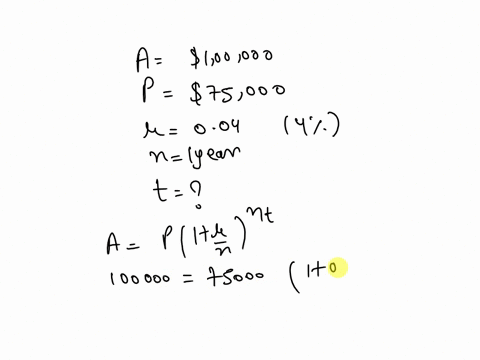 A = $1,00,000
P = $75,000
r = 0.04 (4%)
n = 1year
t = ?
A = P(1+r/n)^nt
100000 = 75000 (1+0